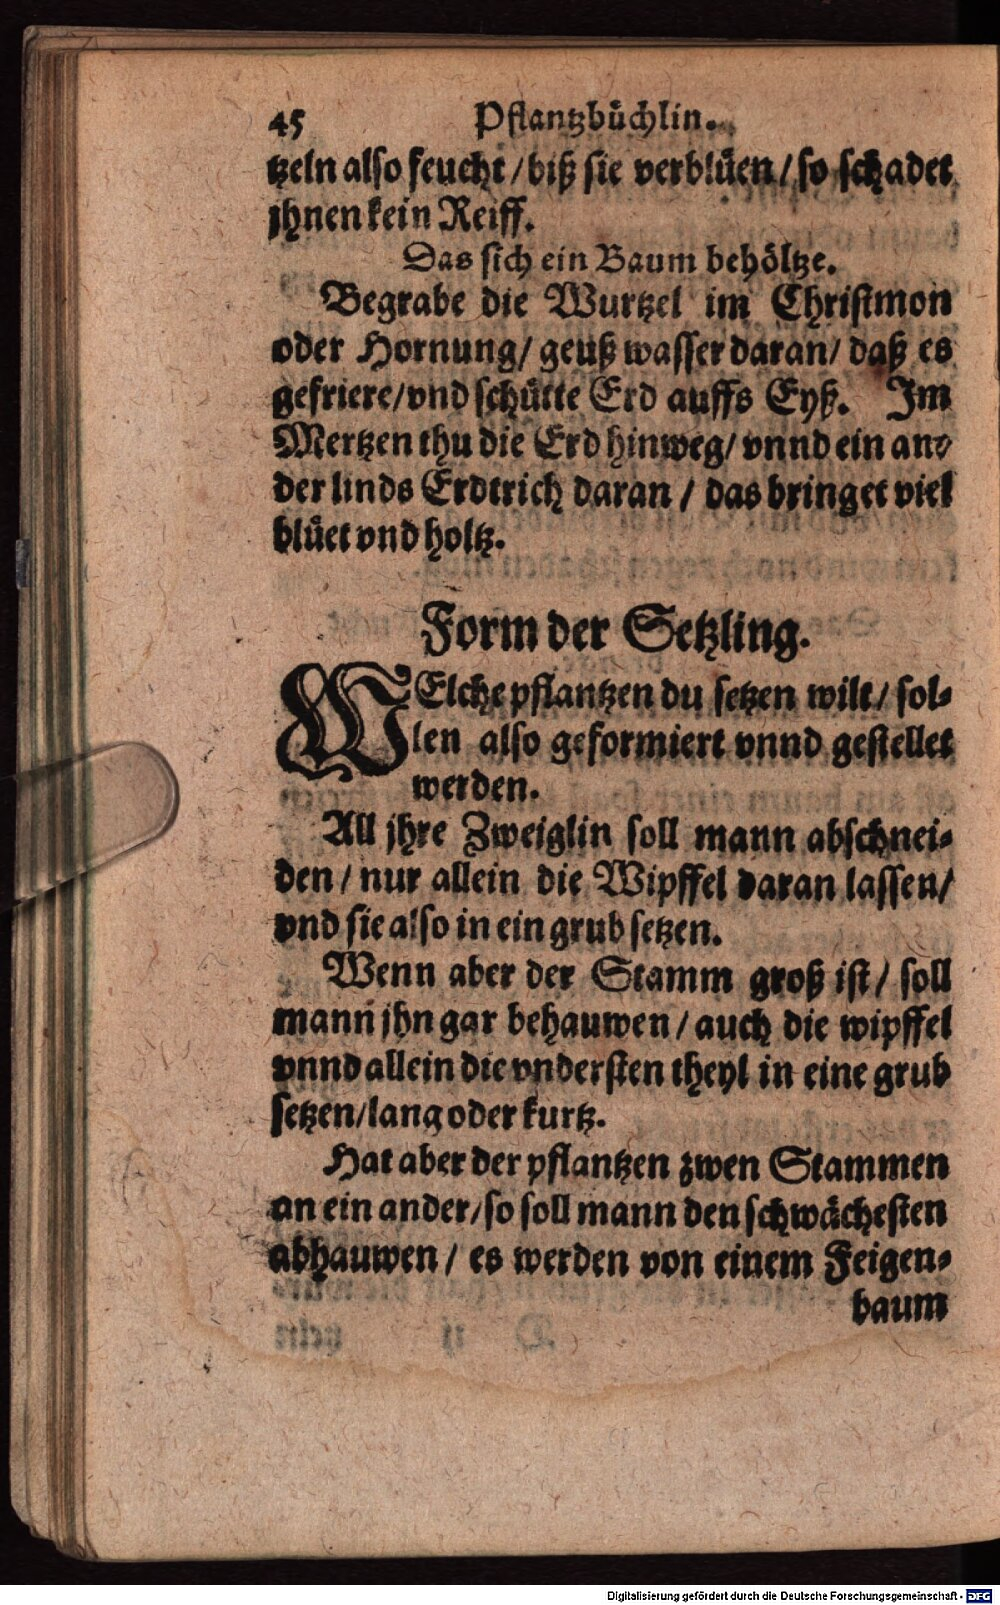 45 Pflantzbüchlin.
tzeln also feucht / biß sie verblüen / so schadet
jhnen kein Reiff.
Das sich ein Baum behöltze.
Begrabe die Wurtzel im Christmon
oder Hornung / geuß wasser daran / daß es
gefriere / vnd schütte Erd auffs Eyß. Im
Mertzen thu die Erd hinweg / vnnd ein an-
der linds Erdtrich daran / das bringet viel
blüet vnd holtz.
Form der Setzling.
WElche pflantzen du setzen wilt / sol-
len also geformiert vnnd gestellet
werden.
All jhre Zweiglin soll mann abschnei-
den / nur allein die Wipffel daran lassen /
vnd sie also in ein grub setzen.
Wenn aber der Stamm groß ist / soll
mann jhn gar behauwen / auch die wipffel
vnnd allein die vndersten theyl in eine grub
setzen / lang oder kurtz.
Hat aber der pflantzen zwen Stammen
an ein ander / so soll mann den schwächesten
abhauwen / es werden von einem Feigen-
baum
Digitalisierung gefördert durch die Deutsche Forschungsgemeinschaft - DFG